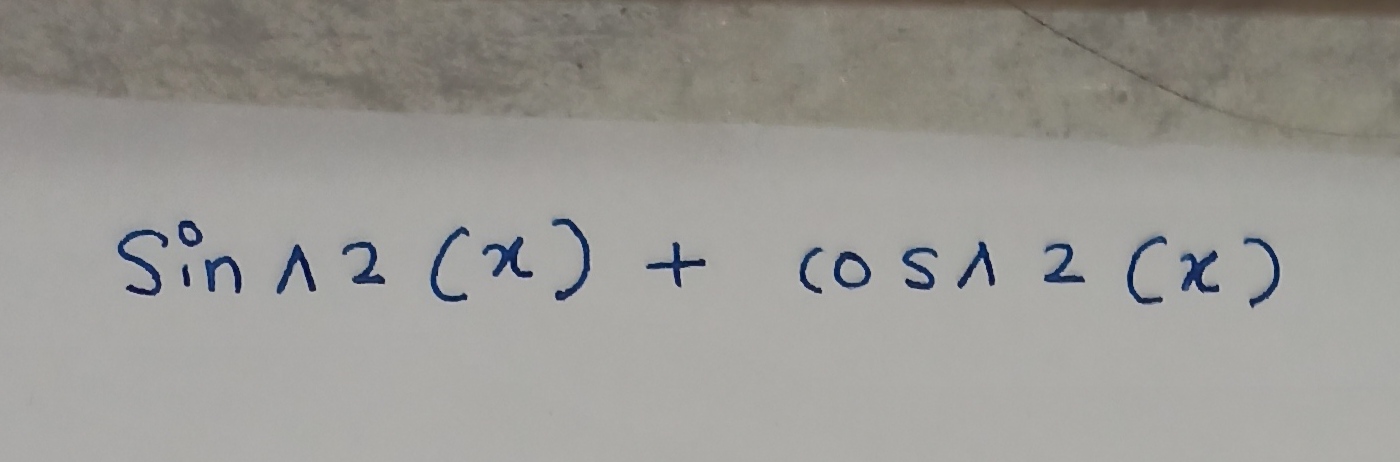 Sin ^ 2 (x) + cos ^ 2 (x)